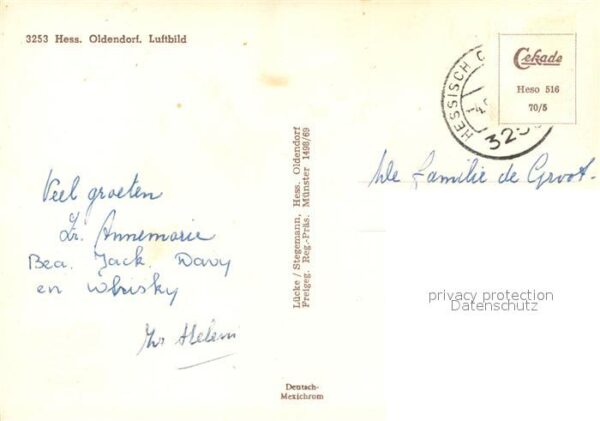 3253 Hess. Oldendorf. Luftbild
Cekade
Heso 516
70/5
HESSISCH
325
Veel groeten
Zr. Annemarie
Bea. Jack. Davy
en Whisky
Zr Heleni
Lücke / Stegemann, Hess. Oldendorf
Freigeg. Reg.-Präs. Münster 1498/69
Familie de Groot.
privacy protection
Datenschutz
Deutsch-
Mexichrom